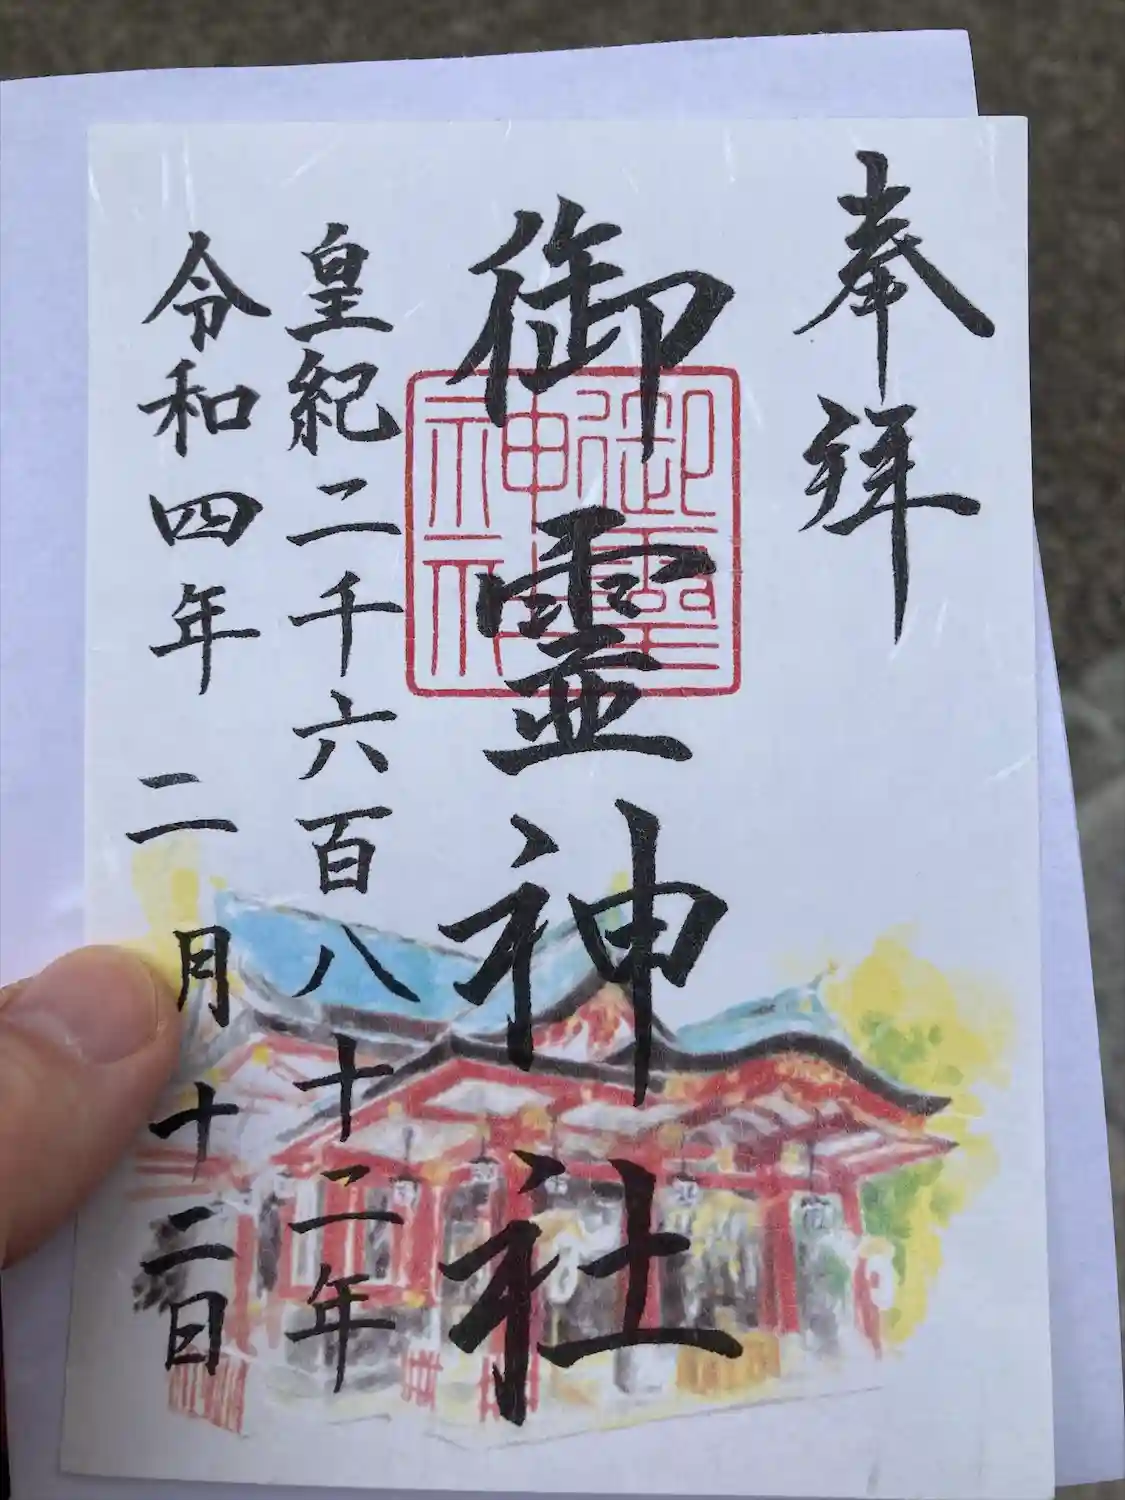 奉拝
御霊神社
御靈神社
皇紀二千六百八十二年
令和四年二月十二日